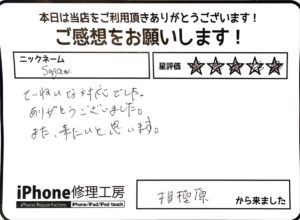 本日は当店をご利用頂きありがとうございます!
ご感想をお願いします!
ニックネーム
Sagami
星評価
ていねいな対応でした。
ありがとうございました。
また、来たいと思います。
iPhone修理工房
iPhone Repair Factory iPhone/iPad/iPod touch
相模原
から来ました